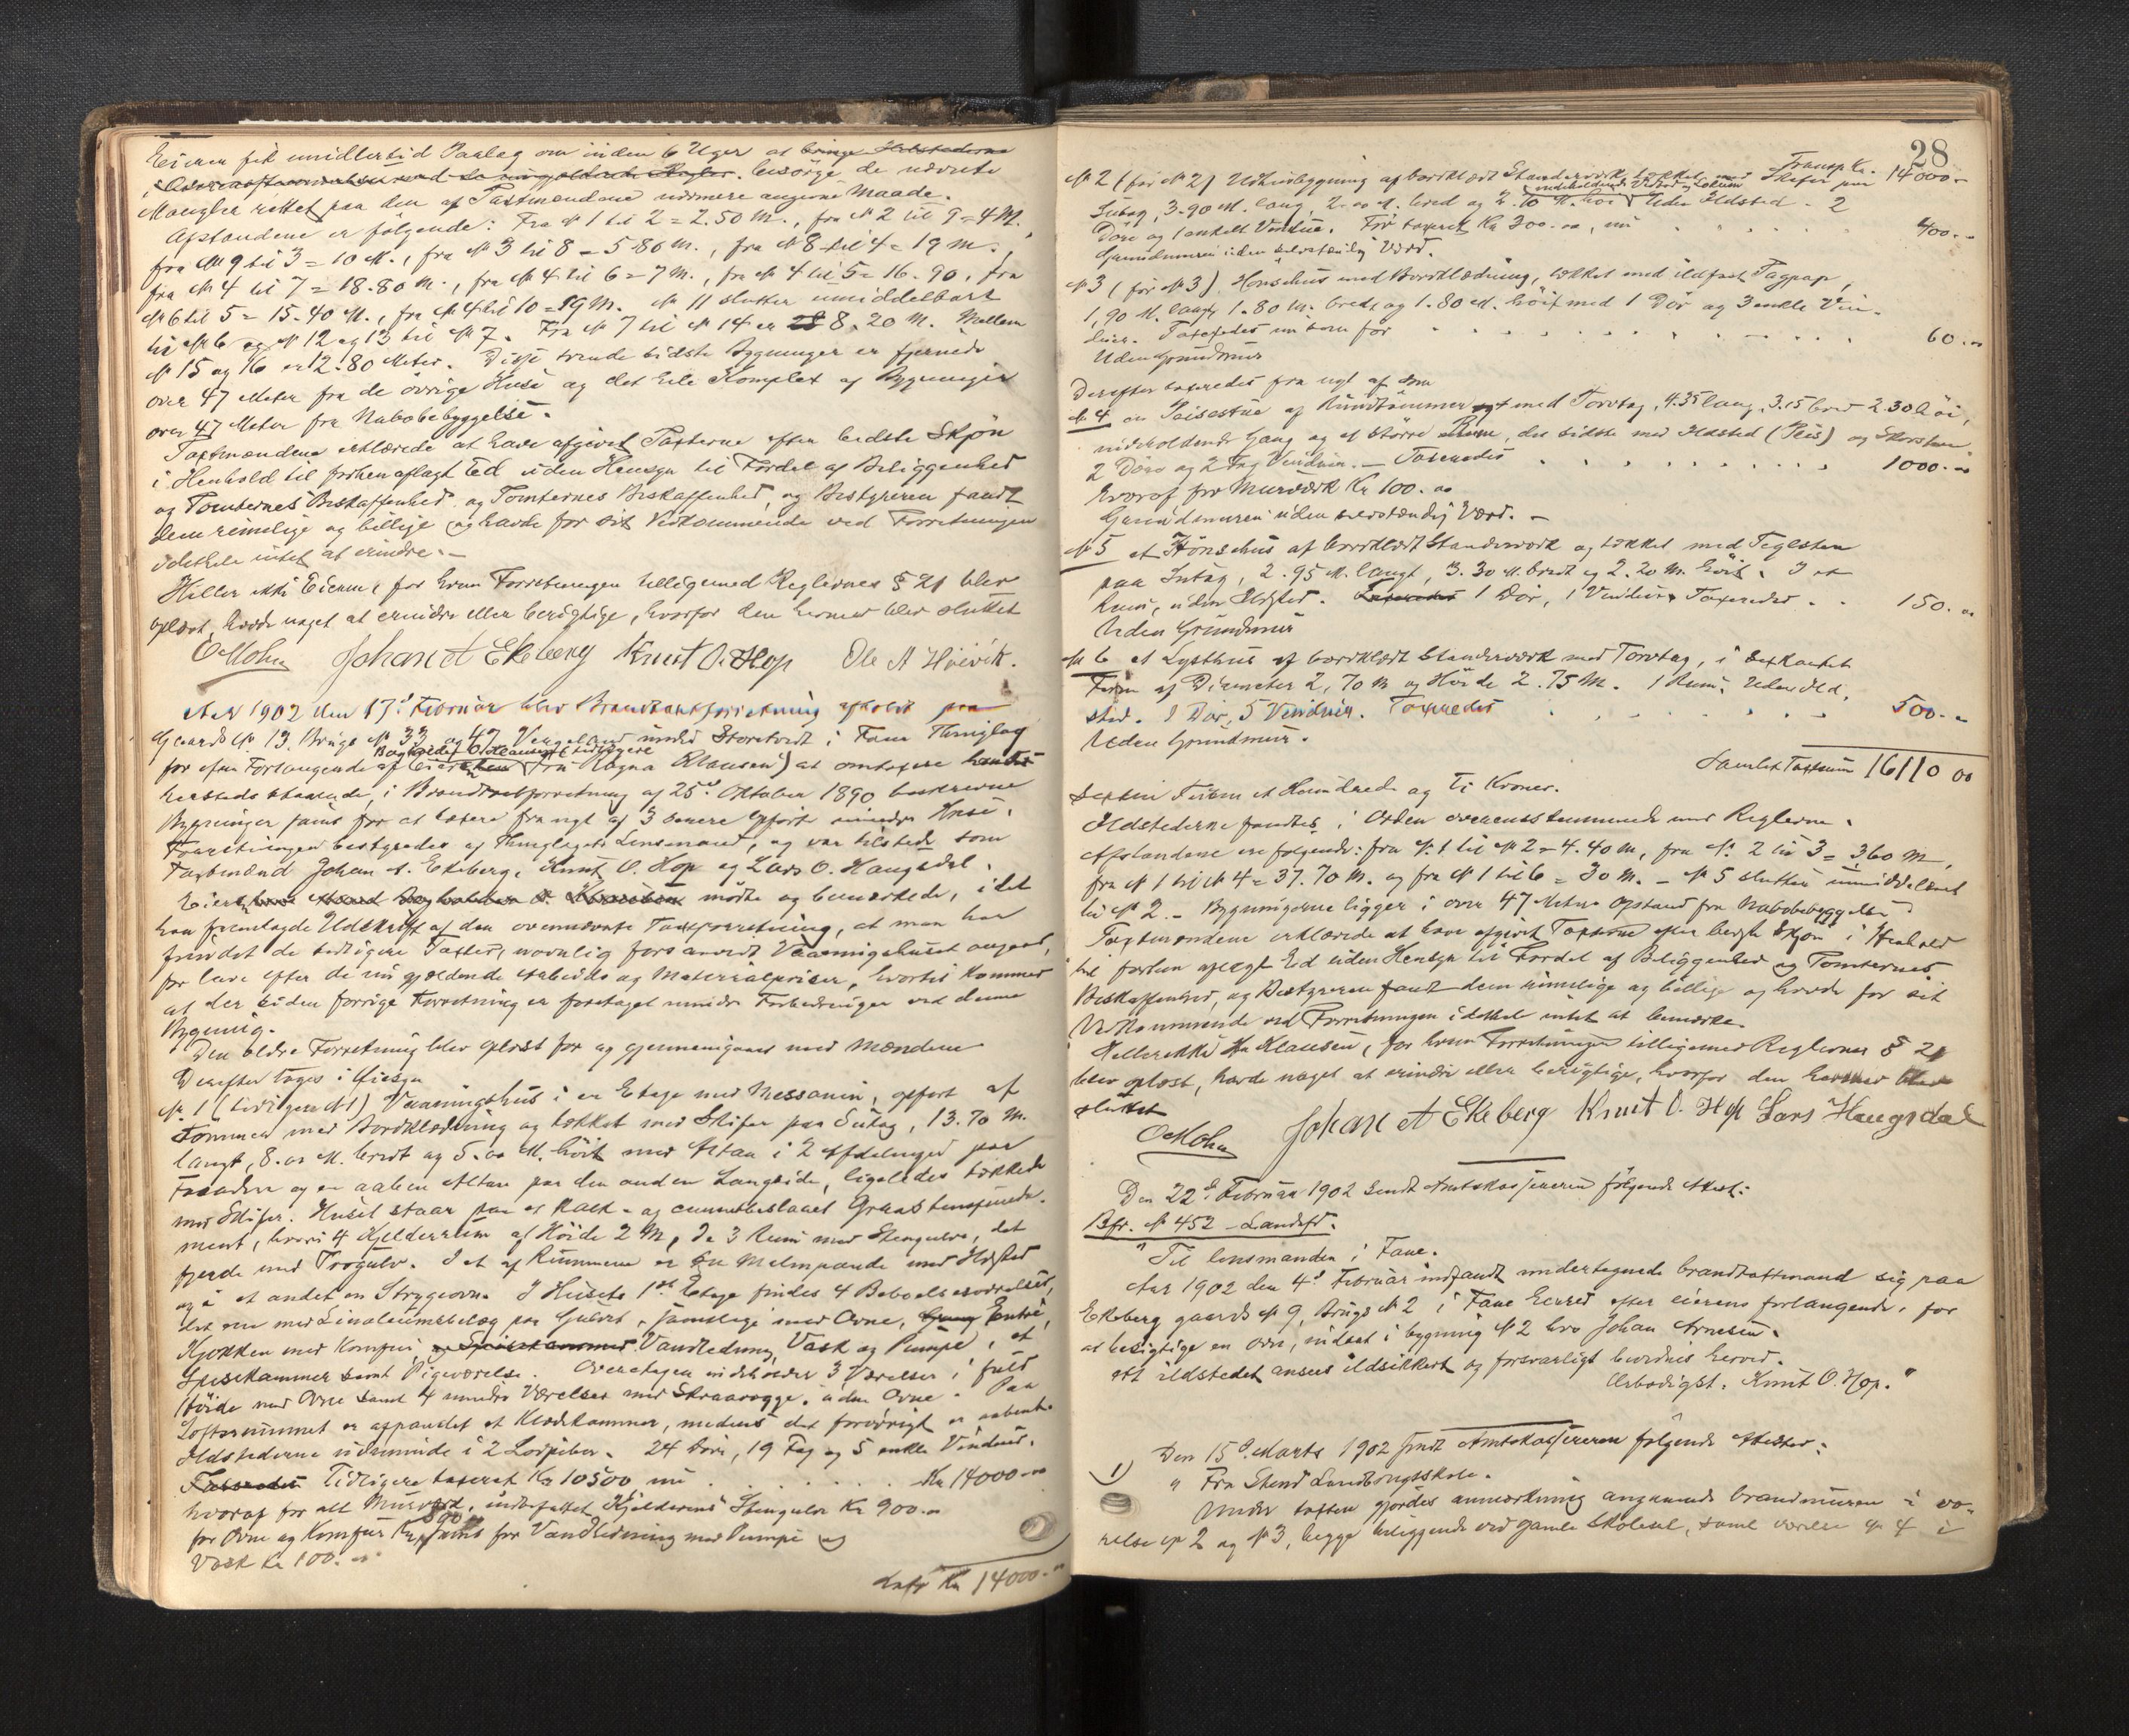 Eieren fik imidlertid Paalæg om inden 6 Uger at bringe Ildstederne
i Overensstemmelse med de nugjældende Regler. besörge de nævnte
Mangler rettet paa den af Taxtmændene nærmere angivne Maade.
Afstandene er følgende: Fra № 1 til 2 = 2.50 M., fra № 2 til 9 = 4 M.,
fra № 9 til 3 = 10 M., fra № 3 til 8 = 5.80 M., fra № 8 til 4 = 19 M.,
fra № 4 til 7 = 18.80 M., fra № 4 til 6 = 7 M., fra № 4 til 5 = 16.90, fra
№ 6 til 5 = 15.40 M., fra № 4 til 10 = 19 M. № 11 slutter umiddelbart
til № 6 og № 12 og 13 til № 7. Fra № 7 til № 14 er 8.20 M. Mellem
№ 15 og 16 er 12.80 Meter. Disse tvende sidste Bygninger er fjernede
over 47 Meter fra de övrige Huse og det hele Komplex af Bygninger
over 47 Meter fra Nabobebyggelse.
Taxtmændene erklærede at have afgivet Taxterne efter bedste Skjön
i Henhold til forhen aflagt Ed uden Hensyn til Fordel af Beliggenhed
og Tomternes Beskaffenhed og Tomternes Beskaffenhed, og Bestyreren fandt
dem rimelige og billige og havde for sit Vedkommende ved Forretningen
idethele intet at erindre.—
Heller ikke Eieren, for hvem Forretningen tilligemed Reglernes § 21 blev
oplæst, havde noget at erindre eller berigtige, hvorfor den hermed blev sluttet
O Mohn Johan A Ekeberg Knut O. Hop Ole A Høivik.
Aar 1902 den 17de Februar blev Brandtaxtforretning afholdt paa
Gaards № 13, Brugs № 33 og 47 under Storetveit i Fane Thinglag
Boghandler O. Klausen (tidligere
for efter Forlangende af Eieren Fru Ragna Klausen) at omtaxere
hersteds staaende, i Brandtaxtforretning af 25de Oktober 1890 beskrevne
Bygninger samt for at taxere fra nyt af 3 senere opförte mindre Huse.
Forretningen bestyredes af Thinglagets Lensmand, og var tilstede som
Taxtmænd Johan A. Ekeberg, Knut O. Hop og Lars O. Haugsdal.
Eieren mödte og bemærkede, idet
han fremlagde Udskrift af den ovennævnte Taxtforretning, at man har
fundet de tidligere Taxter, navnlig forsaavidt Vaaningshuset angaar,
for lave efter de nu gjældende Arbeids og Materialpriser, hvortil kommer
at der siden forrige Forretning er foretaget mindre Forbedringer ved denne
Bygning.
Den ældre Forretning blev oplæst for og gjennemgaaet med Mændene
Derefter toges i Öiesyn
№ 1 (tidligere № 1) Vaaningshus i en Etage med Messanin, opfört af
Tömmer med Bordklædning og tækket med Skifer paa Sutag, 13.70 M.
langt, 8.00 M. bredt og 5.00 M. höit med Altan i 2 Afdelinger paa
Facaden og en aaben Altan paa den anden Langside, ligeledes tækkede
med Skifer. Huset staar paa et Kalk- og cementslaaet Graastensfunda-
ment, hvori 4 Kjelderrum af Höide 2 M, de 3 Rum med Stengulv, det
fjerde med Trægulv. I et af Rummene er en Malmpande med Ildsted
og i et andet en Strygeovn. I Husets 1ste Etage findes 4 Beboelsesværelser,
det ene med Linoleumsbelæg paa Gulvet, samtlige med Ovne, Gang Entré,
Kjökken med Komfur og Spisekammer Vandledning, Vask og Pumpe, et
Spisekammer samt Pigeværelse. Overetagen indeholder 3 Værelser i fuld
Höide med Ovne samt 4 mindre Værelser med Skraavægge, uden Ovne. Paa
Loftsrummet er afpanelet et Klædekammer, medens det forövrigt er aabent.
Ildstederne udmunde i 2 Lodpiber. 24 Döre, 19 Fag og 5 enkle Vinduer.
Taxeredes Tidligere taxeret Kr 10500 nu . . . . . Kr 14000.00
hvoraf for alt Murværk, indbefattet Kjelderens Stengulv Kr 900.00
for Ovne og Komfur Kr 390 samt for Vandledning med Pumpe og
Vask Kr 100.00
Latr Kr 14000.00
28
Transp Kr. 14000.—
№ 2 (för № 2) Udhusbygning af bordklædt Standerværk tækket med Skifer paa
indeholdende Vedbod og Lokum
Sutag, 3.90 M. lang, 2.00 M. bred og 2.70 M. höi Uden Ildsted. 2
Döre og 1 enkelt Vindue. För taxeret Kr 300.00, nu . . . . . 400.—
Grundmuren uden selvstændig Værd.
№ 3 (för № 3) Hönsehus med Bordklædning, tækket med ildfast Tagpap,
1,90 M. langt, 1.80 M. bredt og 1.80 M. höit med 1 Dör og 3 enkle Vin-
duer. Taxeredes nu som för . . . . . 60.00
Uden Grundmur
Derefter taxeredes fra nyt af som
№ 4 en Peisestue af Rundtömmer med Torvtag, 4.35 lang, 3.15 bred 2.30 höi,
indeholdende Gang og et större Rum, det sidste med Ildsted (Peis) og Skorsten
2 Döre og 2 Fag Vinduer. — Taxeredes . . . . . 1000.00
hvoraf for Murværk Kr 100.00
Grundmuren uden selvstændig Værd. —
№ 5 et Hönsehus af bordklædt Standerværk og tækket med Teglsten
paa Sutag, 2.95 M. langt, 3.30 M. bredt og 2.20 M. höit. I et
Rum, uden Ildsted. Taxeredes 1 Dör, 1 Vindue. Taxeredes . . 150.00
Uden Grundmur
№ 6 et Lysthus af bordklædt Standerværk med Torvtag, i sexkantet
Form af Diameter 2,70 M og Höide 2.75 M. 1 Rum. Uden Ild-
sted. 1 Dör, 5 Vinduer. Taxeredes . . . . . 500.—
Uden Grundmur.
Samlet Taxtsum 16110 00
Sexten Tusen et Hundrede og Ti Kroner.
Ildstederne fandtes i Orden overensstemmende med Reglerne.
Afstandene ere følgende: fra № 1 til № 2 = 4.40 M, fra № 2 til 3 = 3,60 M,
fra № 1 til № 4 = 37.70 M. og fra № 1 til 6 = 30 M. — № 5 slutter umiddelbart
til № 2. — Bygningerne ligger i over 47 Meters Afstand fra Nabobebyggelse
Taxtmændene erklærede at have afgivet Taxterne efter bedste Skjön i Henhold
til forhen aflagt Ed uden Hensyn til Fordel af Beliggenhed og Tomternes
Beskaffenhed, og Bestyreren fandt dem rimelige og billige og havde for sit
Vedkommende ved Forretningen idethele intet at bemærke.
Heller ikke Hr Klausen, for hvem Forretningen tilligemed Reglernes § 21
blev oplæst, havde noget at erindre eller berigtige, hvorfor den hermed blev
sluttet
O Mohn Johan A Ekeberg Knut O. Hop Lars Haugsdal
Den 22de Februar 1902 sendt Amtskassjereren følgende Attest:
Bfr. № 452 – Landsfd.
"Til lensmanden i Fane.
Aar 1902 den 4de Februar indfandt undertegnede brandtaxtmand sig paa
Ekeberg gaards № 9, brugs № 2 i Fane herred efter eierens forlangende, for
at besigtige en ovn, indsat i bygning № 2 hos Johan Arnesen.
At ildstedet ansees ildsikkert og forsvarligt bevidnes herved.
Ærbødigst. Knut O. Hop."
Den 15de Marts 1902 sendt Amtskassjereren følgende Attester:
1) "Fra Stend Landbrugsskole.
Under taxten gjordes anmærkning angaaende brandmuren i væ-
relse № 2 og № 3, begge beliggende ved gamle skolesal, samt værelse № 4 i